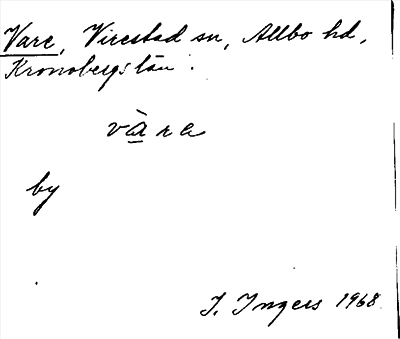 Vare, Virestad sn, Allbo hd,
Kronobergs län.
và̱re
by
I. Ingers 1968